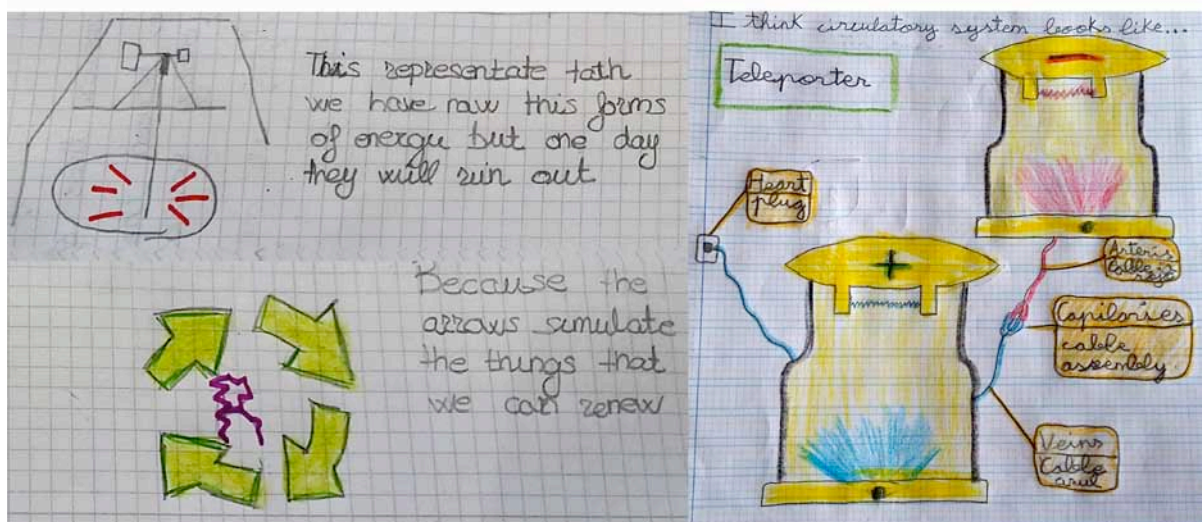 This representate tath
we have now this forms
of energu but one day
they will run out
Because the
arrows simulate
the things that
we can renew
I think circulatory system looks like...
Teleporter
Heart
plug
Arteris
Cable
Capilaries
cable
assembly
Veins
Cable